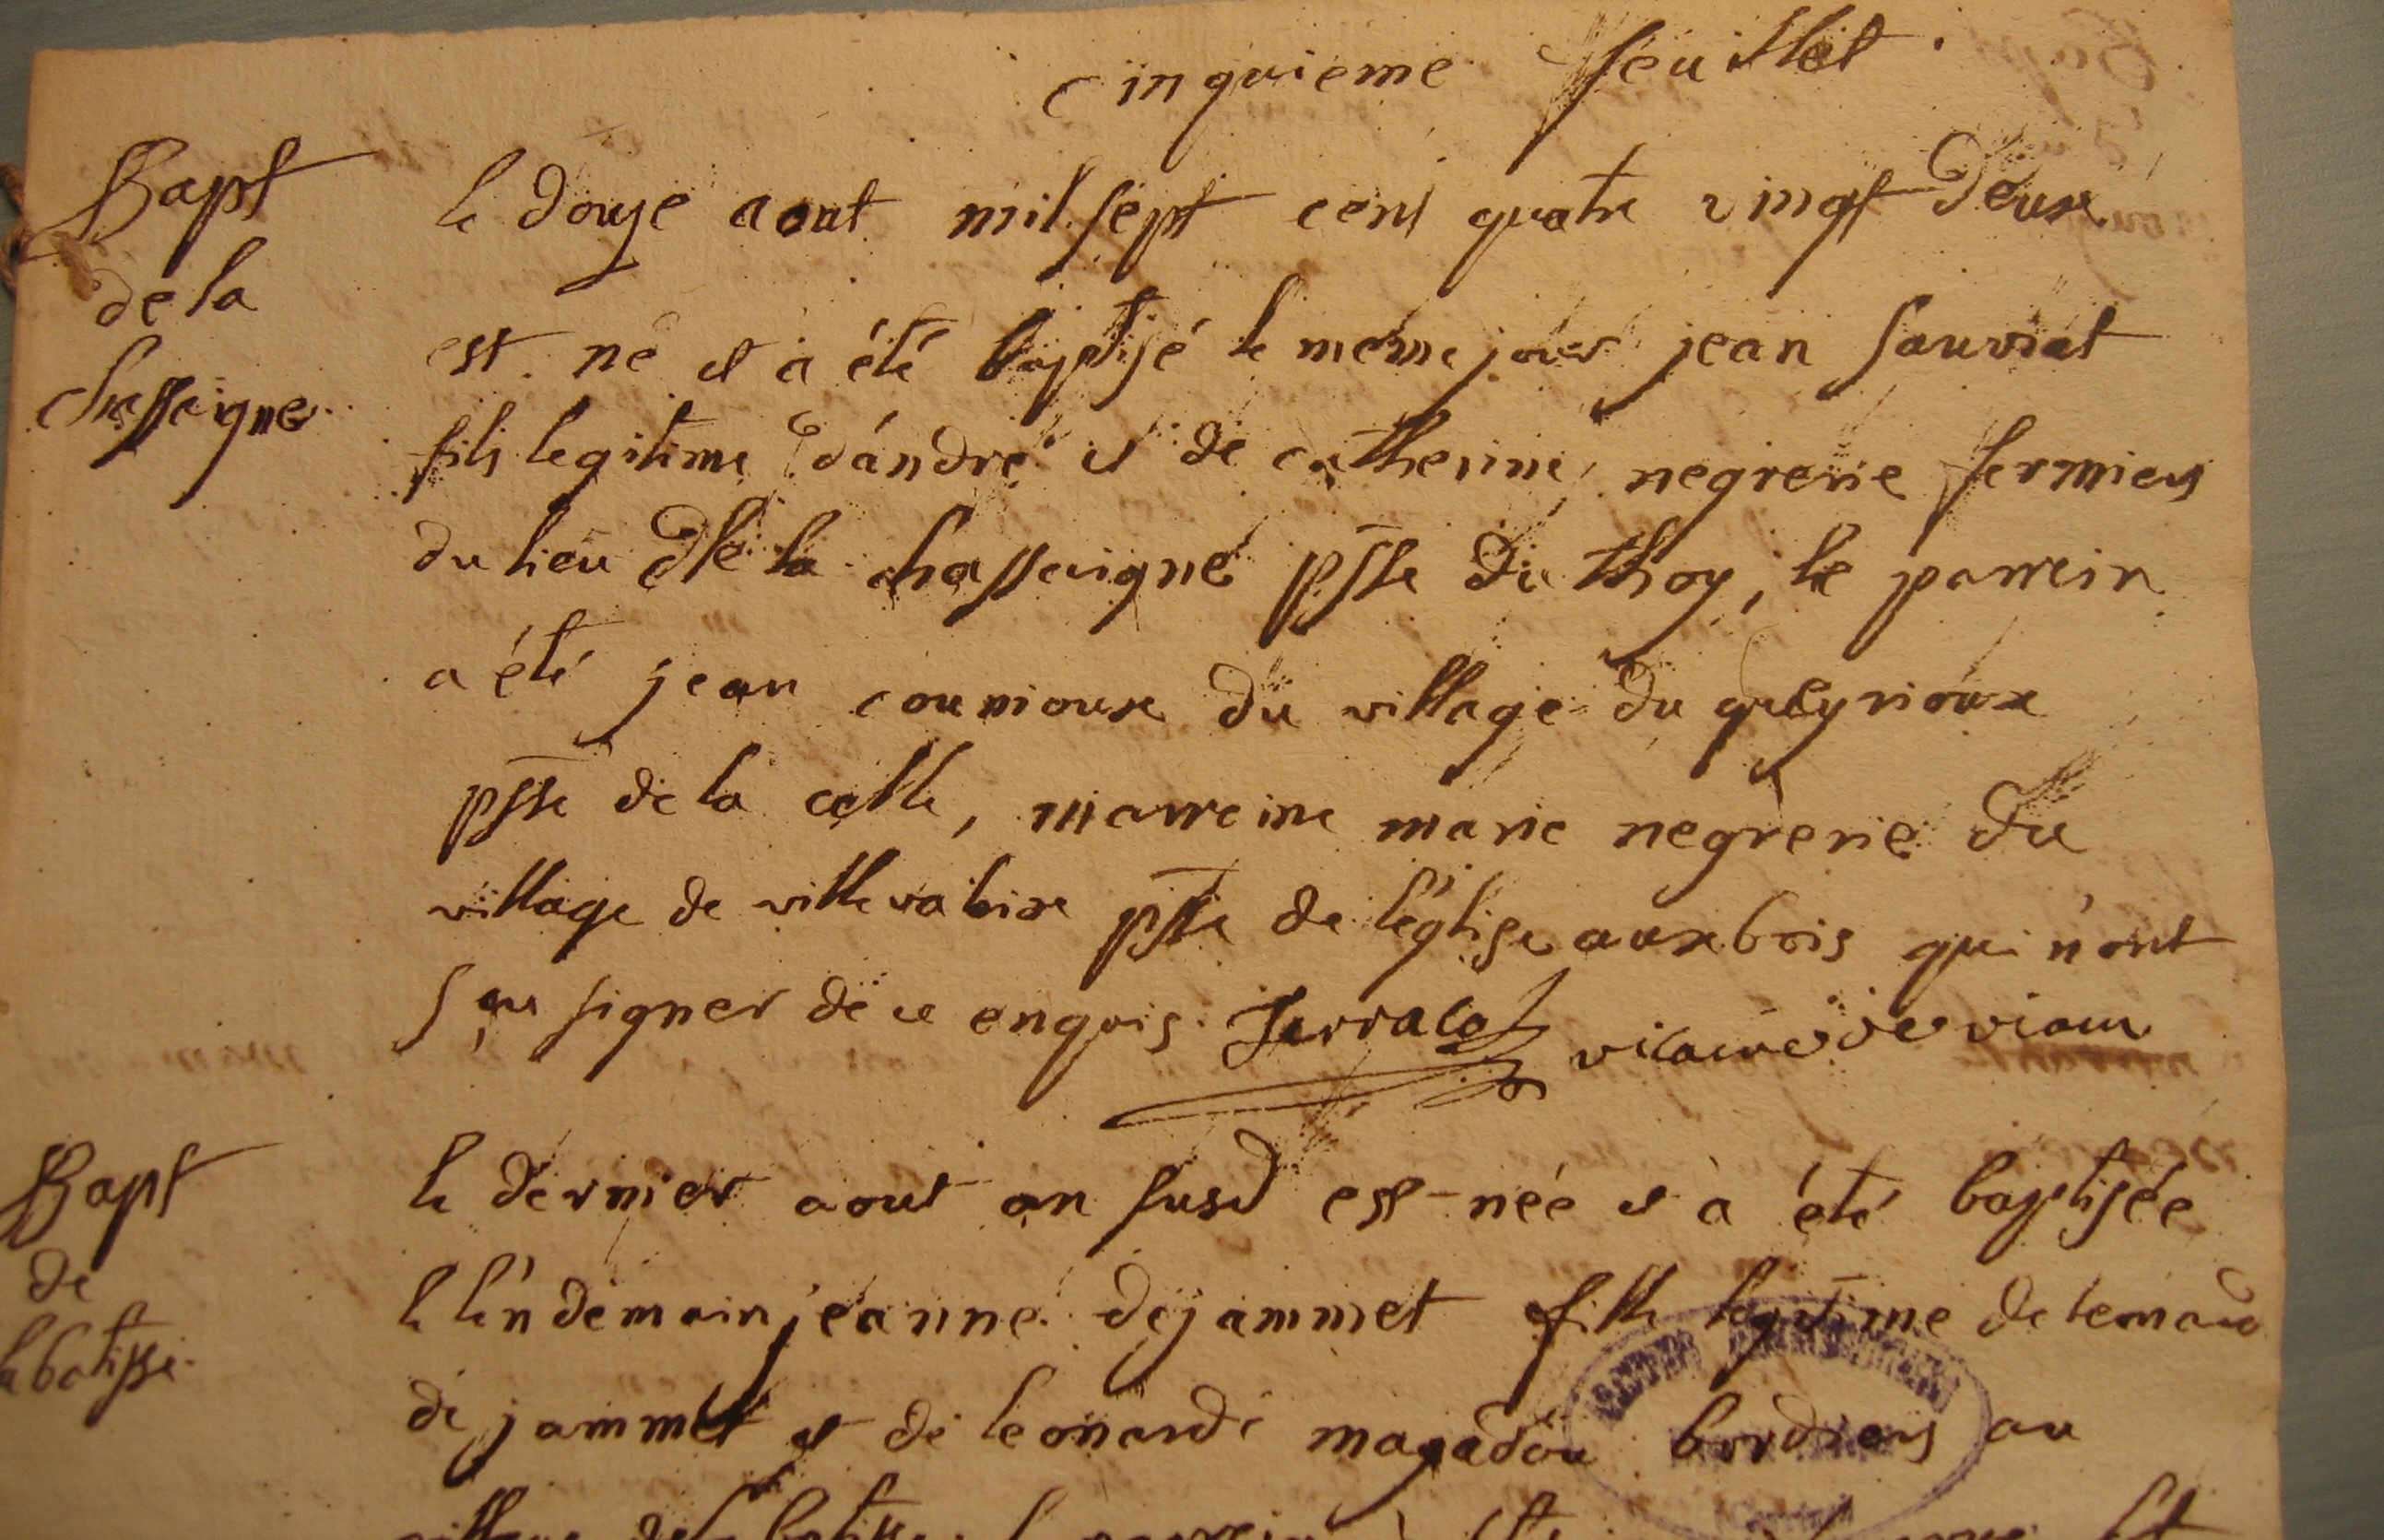 cinquieme feuillet.
Bapt
de la
chassaigne
le douze aout mil sept cent quatre vingt deux
est né et a été baptisé le meme jour jean sauviat
fils legitime d'andré et de catherine negrerie fermiers
du lieu de la chassaigne psse du thoy, le parrein
a été jean counioux du village du queyrioux
psse de la celle, marreine marie negrerie du
village de villevaleix psse de l'église aux bois qui n'ont
sçu signer de ce enquis. Jarraco vicaire de viam
Bapt
de
la batisse.
le dernier aout an susd est née et à été baptisée
le l'endemain jeanne dejammet fille legitime de lemard
de jammet et de leonarde magadou bordiers au
village de la batisse. le parrein à été